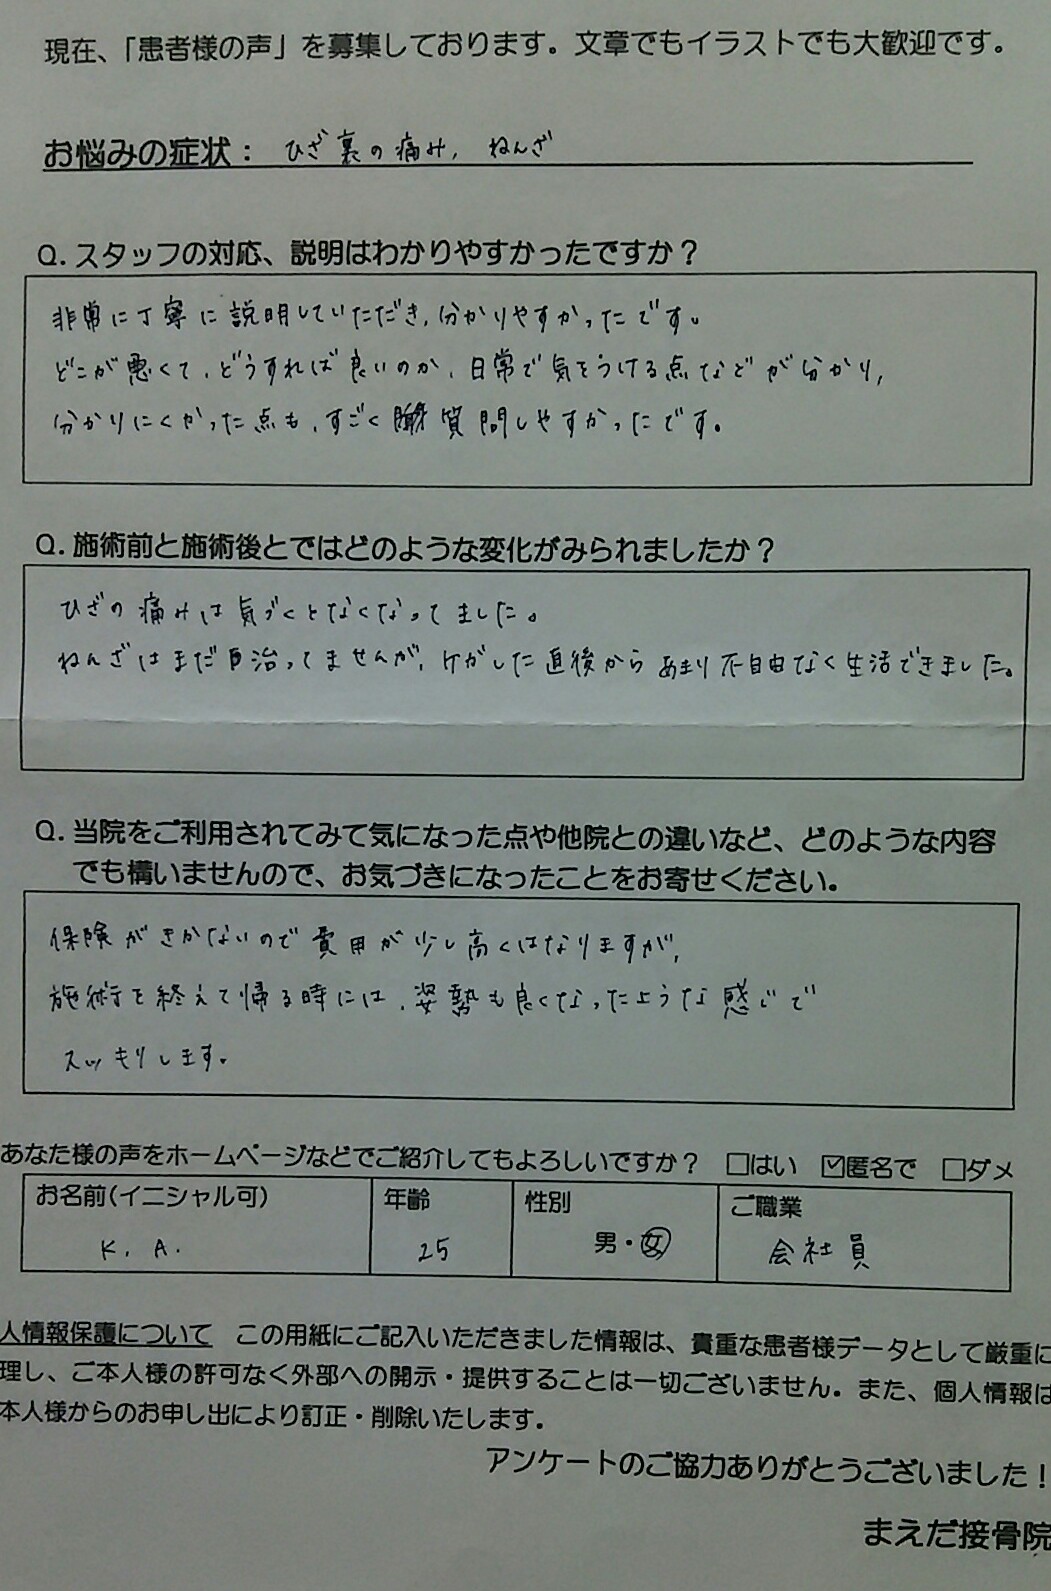 現在、「患者様の声」を募集しております。文章でもイラストでも大歓迎です。
お悩みの症状： ひざ裏の痛み, ねんざ
Q. スタッフの対応、説明はわかりやすかったですか？
非常に丁寧に説明していただき, 分かりやすかったです。
どこが悪くて、どうすれば良いのか、日常で気をつける点などが分かり,
分かりにくかった点も、すごく質問しやすかったです。
Q. 施術前と施術後とではどのような変化がみられましたか？
ひざの痛みは気づくとなくなってました。
ねんざはまだ治ってませんが、ケガした直後からあまり不自由なく生活できました。
Q. 当院をご利用されてみて気になった点や他院との違いなど、どのような内容
でも構いませんので、お気づきになったことをお寄せください。
保険がきかないので費用が少し高くはなりますが,
施術を終えて帰る時には、姿勢も良くなったような感じで
スッキリします。
あなた様の声をホームページなどでご紹介してもよろしいですか？ □はい ☑匿名で □ダメ
お名前(イニシャル可) 年齢 性別 ご職業
K. A. 25 男・女 会社員
人情報保護について この用紙にご記入いただきました情報は、貴重な患者様データとして厳重に
理し、ご本人様の許可なく外部への開示・提供することは一切ございません。また、個人情報は
本人様からのお申し出により訂正・削除いたします。
アンケートのご協力ありがとうございました！
まえだ接骨院